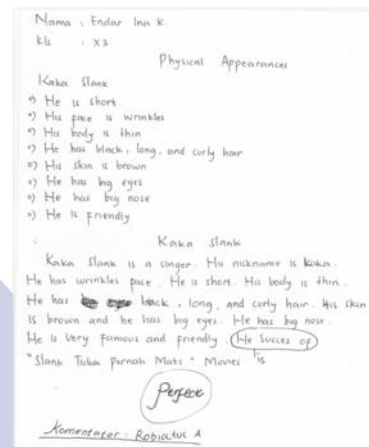 Nama : Endar Ina K.
Kls : X3
Physical Appearances
Kaka Slank
°) He is short
°) His face is wrinkles
°) His body is thin
°) He has black, long, and curly hair
°) His skin is brown
°) He has big eyes
°) He has big nose
°) He is friendly
Kaka Slank
Kaka Slank is a singer. His nickname is kaka.
He has wrinkles face. He is short. His body is thin.
He has back, long, and curly hair. His skin
is brown and he has big eyes. He has big nose.
He is very famous and friendly. He Succes of
"Slank Tidak Pernah Mati" Movies is
Perfect
Komentator : Robiatul A